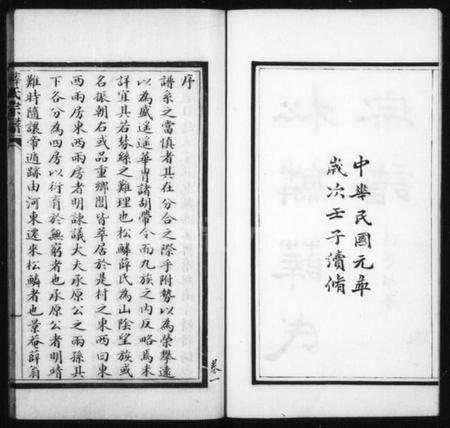 中華民國元年
歲次壬子續脩
序
譜系之當慎者其在分合之際乎附勢以為榮攀遠
以為盛遥遥華冑諸胡帶令而九族之內反略焉未
詳宜其若棼絲之難理也松鱗薛氏為山陰望族或
名振朝右或品重鄉閭皆萃居於是村之東西曰東
西兩房東西兩房者明諫議大夫永原公之兩孫其
下各分為四房以衍育於無窮者也永原公者明靖
難時隨讓帝遁跡由河東遷來松鱗者也景菴薛翁
薛氏宗譜
卷一